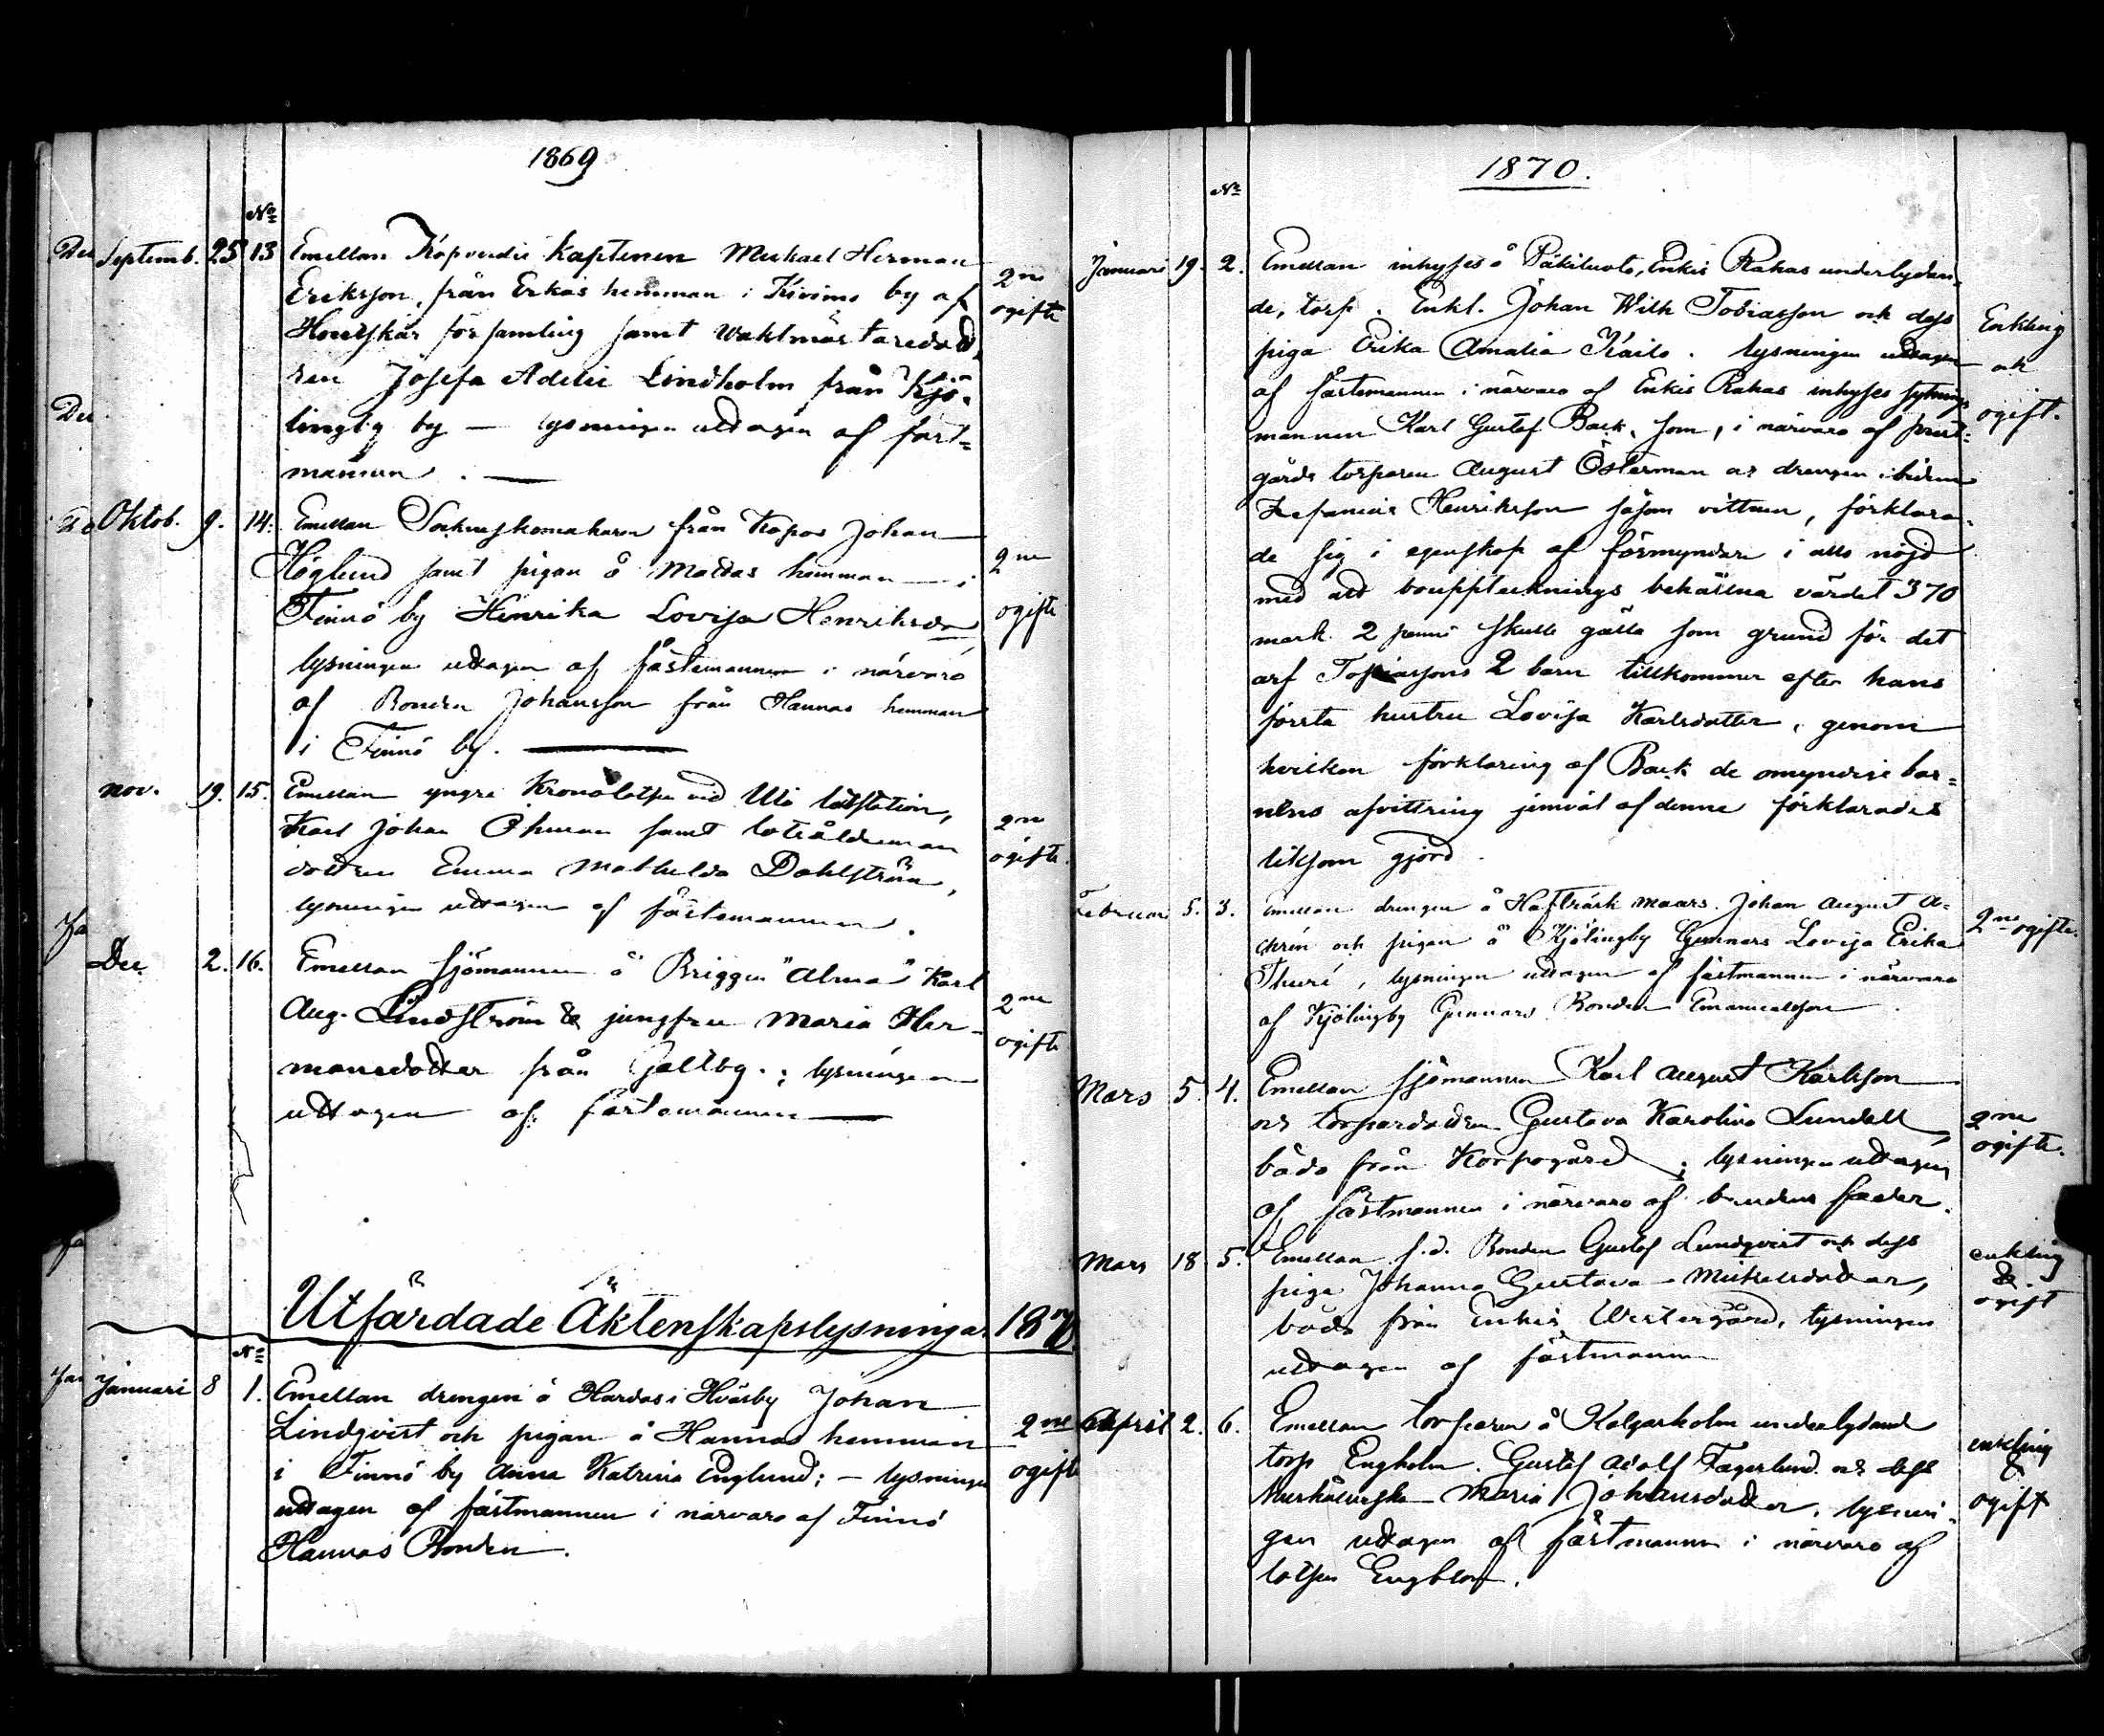 1869
No
Septemb. 25 13 Emellan Kopverdie Kaptenen Mickael Herman
Eriksson, från Erkas hemman i Kivimo by af
Houtskär församling samt
ren Josefa Adelie Lindholm från Kjö-
lingby by — lysningen uttagen af fäst-
mannen. —
2ne
ogifte
Oktob. 9. 14. Emellan Sockneskomakaren från Korpo Johan
Höglund samt pigan å Mattas hemman i
Finnö by Henrika Lovisa Henriksdr
lysningen uttagen af fästemannen i närvaro
af Bonden Johansson från Hannas hemman
i Finnö by. —
2ne
ogifte
Nov. 19. 15. Emellan yngre Kronolotsen vid Utö lotsstation,
Karl Johan Öhman samt lotsålderman
dottren Emma Mathilda Dahlström,
lysningen uttagen af fästemannen.
2ne
ogifte.
Dec. 2. 16. Emellan sjömannen å Briggen "Alma" Karl
Aug. Lindström & jungfru Maria Her-
mansdotter från Galtby.; lysningen
uttagen af fästemannen —
2ne
ogifte
Utfärdade Äktenskapslysningar 1870
No
Januari 8 1. Emellan drengen å Hardas i Hväsby Johan
Lindqvist och pigan å Hannas hemman
i Finnö by Anna Katrina Englund; — lysningen
uttagen af fästmannen i närvaro af Finnö
Hannas Bonden.
2ne
ogifte
1870.
No
Januari 19. 2. Emellan inhyses å Päkiluoto, Enkis Rakas underlydan-
de, torp. Enkl. Johan Wilh Tobiasson och dess
piga Erika Amalia Kailo. lysningen uttagen
af fästemannen i närvaro af Enkis Rakas inhyses sytnings
mannen Karl Gustaf Back, som, i närvaro af prest-
gårds torparen August Österman och drengen
Zefanias Henriksson såsom vittnen, förklara-
de sig i egenskap af förmyndare i allo nöjd
med att bouppteknings behållna värdet 370
mark 2 penni skulle gälla som grund för det
arf Tobiassons 2 barn tillkommer efter hans
första hustru Lovisa Karlsdotter, genom
hvilken förklaring af Back de omyndige bar-
nens afvittring jemväl af denne förklarades
liksom gjord.
Enkling
och
ogift.
Februari 5. 3. Emellan drengen å Hafträsk Maars. Johan August A-
chrén och pigan å Kjölingby Gunnars Lovisa Erika
Thuré, lysningen uttagen af fästmannen i närvaro
af Kjölingby Gunnars Bonden Emanuelsson.
2ne ogifte.
Mars 5. 4. Emellan sjömannen Karl August Karlsson
och torpardottren Gustava Karolina Lundell,
båda från Korpogård; lysningen uttagen
af fästmannen i närvaro af brudens fader.
2ne
ogifte.
Mars 18. 5. Emellan f.d. Bonden Gustaf Lundqvist och dess
piga Johanna Gustava Mickelsdotter,
båda från Enkis Westergård, lysningen
uttagen af fästmannen
enkling
&
ogift
April 2. 6. Emellan torparen å Kalgarholm underlydand
torp Engholm. Gustaf Adolf Fagerlund och dess
Maria Johansdotter. lysnin-
gen uttagen af fästmannen i närvaro af
lotsen Engblom.
enkling
&
ogift